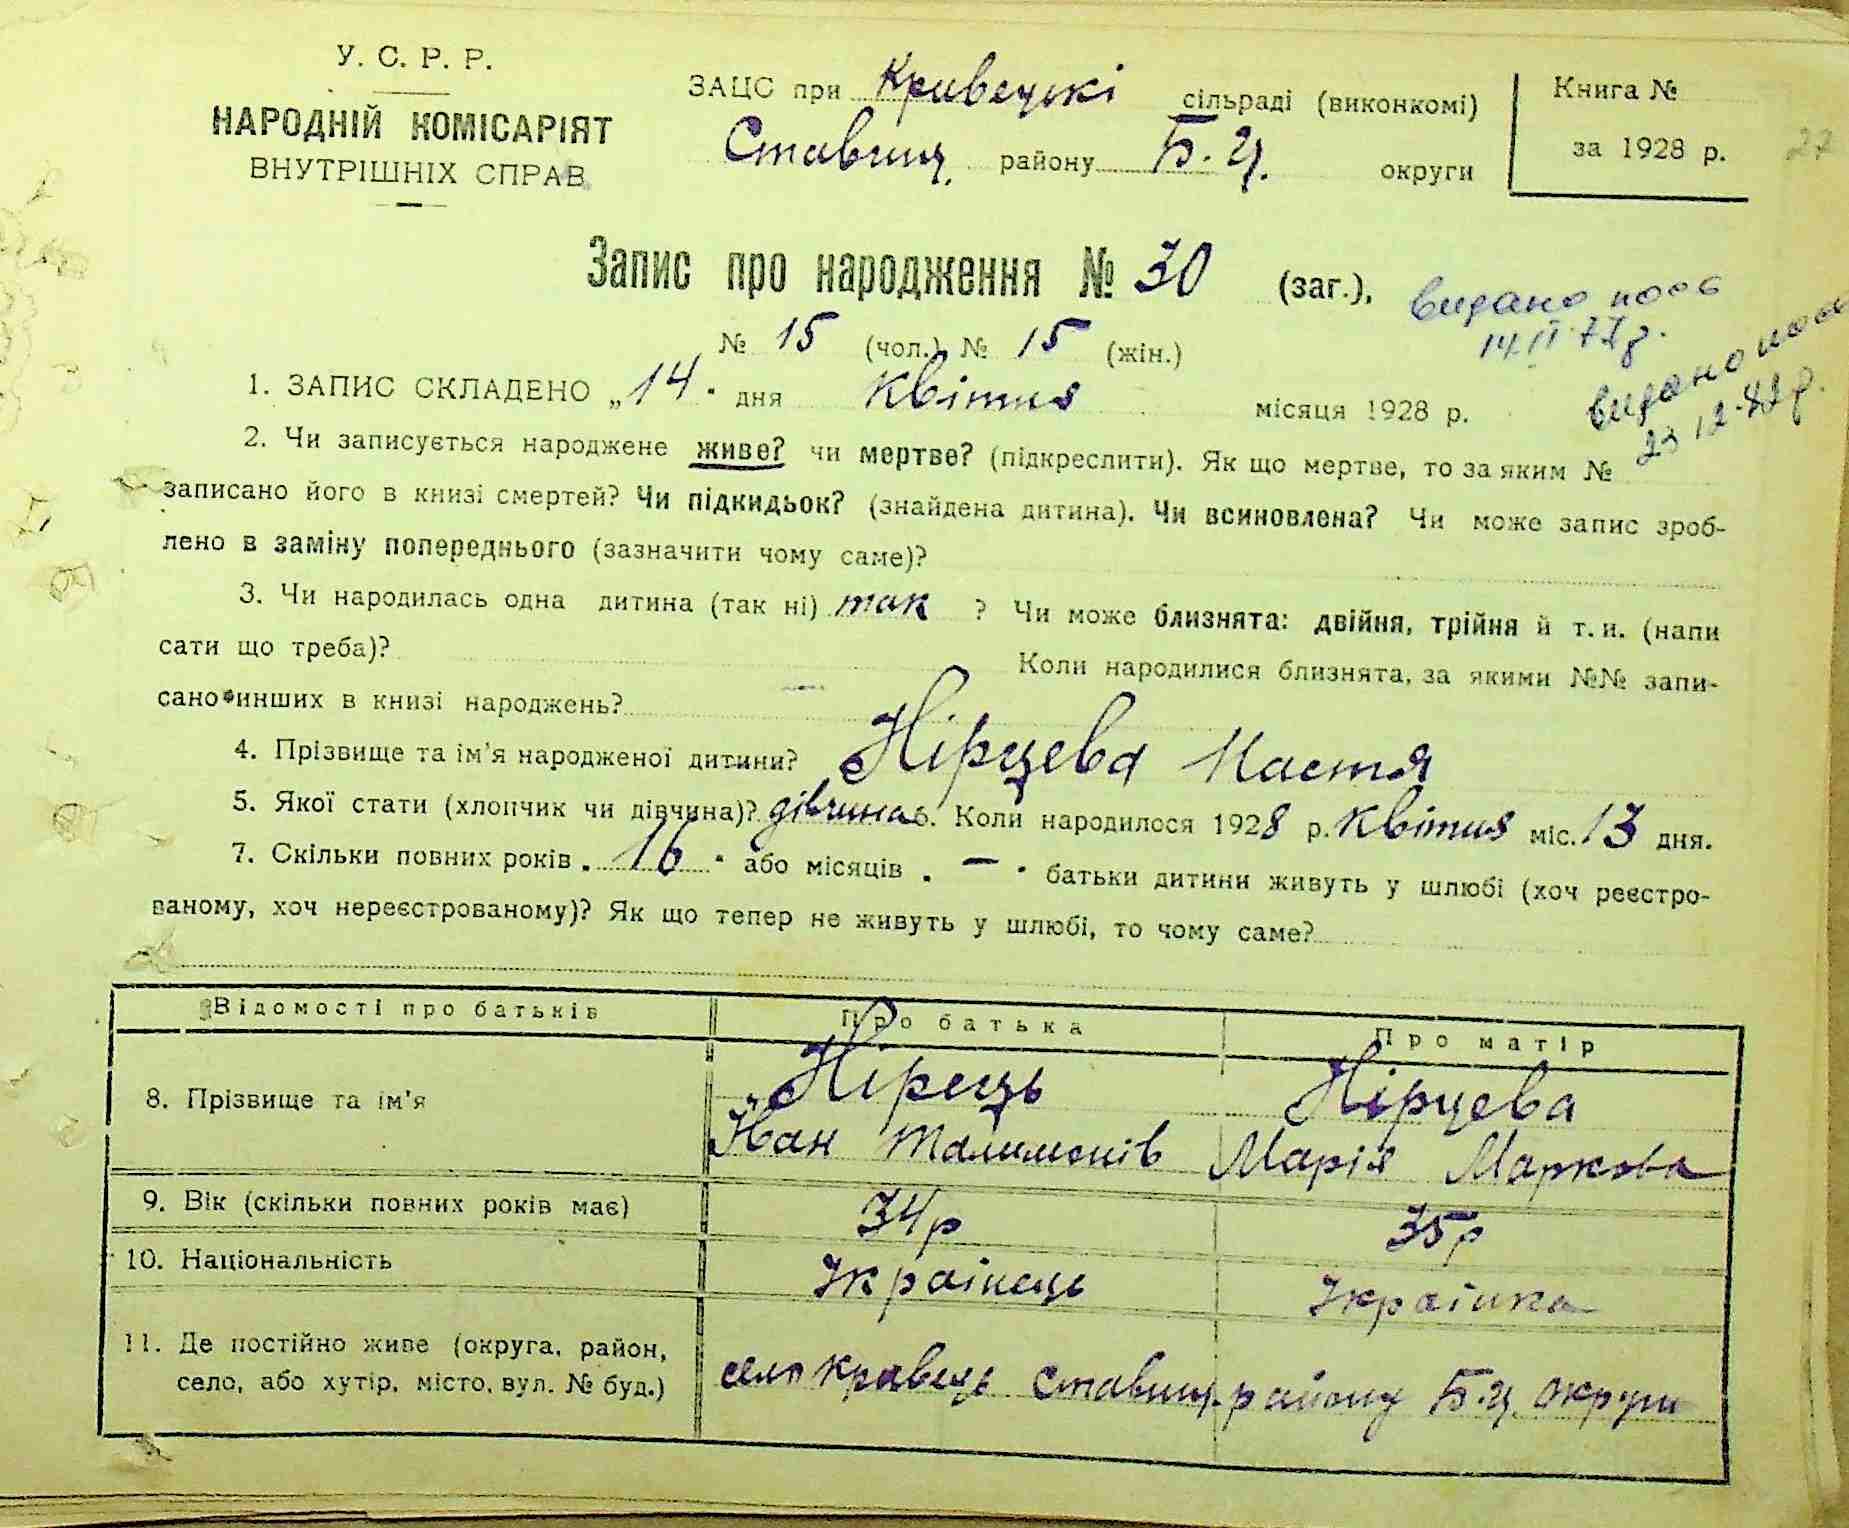 У. С. Р. Р.
НАРОДНІЙ КОМІСАРІЯТ
ВНУТРІШНІХ СПРАВ
ЗАЦС при Кривецькі сільраді (виконкомі)
Ставищ. району Б. Ц. округи
Книга №
за 1928 р.
27
Запис про народження № 30 (заг.),
№ 15 (чол.) № 15 (жін.)
видано
14 II 77 р.
видано
23 12
1. ЗАПИС СКЛАДЕНО „14" дня квітня місяця 1928 р.
2. Чи записується народжене живе? чи мертве? (підкреслити). Як що мертве, то за яким №
записано його в книзі смертей? Чи підкидьок? (знайдена дитина). Чи всиновлена? Чи може запис зроб-
лено в заміну попереднього (зазначити чому саме)?
3. Чи народилась одна дитина (так ні) так ? Чи може близнята: двійня, трійня й т. и. (напи
сати що треба)? Коли народилися близнята, за якими №№ запи-
сано инших в книзі народжень?
4. Прізвище та ім'я народженої дитини? Нірцева Настя
5. Якої стати (хлопчик чи дівчина)? дівчина 6. Коли народилося 1928 р. квітня міс. 13 дня.
7. Скільки повних років „16" або місяців „—" батьки дитини живуть у шлюбі (хоч реєстро-
ваному, хоч нереєстрованому)? Як що тепер не живуть у шлюбі, то чому саме?
Відомості про батьків Про батька Про матір
8. Прізвище та ім'я Нірець Нірцева
Іван Талимонів Марія Маркова
9. Вік (скільки повних років має) 34р 35р
10. Національність Українець Українка
11. Де постійно живе (округа, район,
село, або хутір, місто, вул. № буд.) село Кравець Ставищ. району Б. Ц. округи